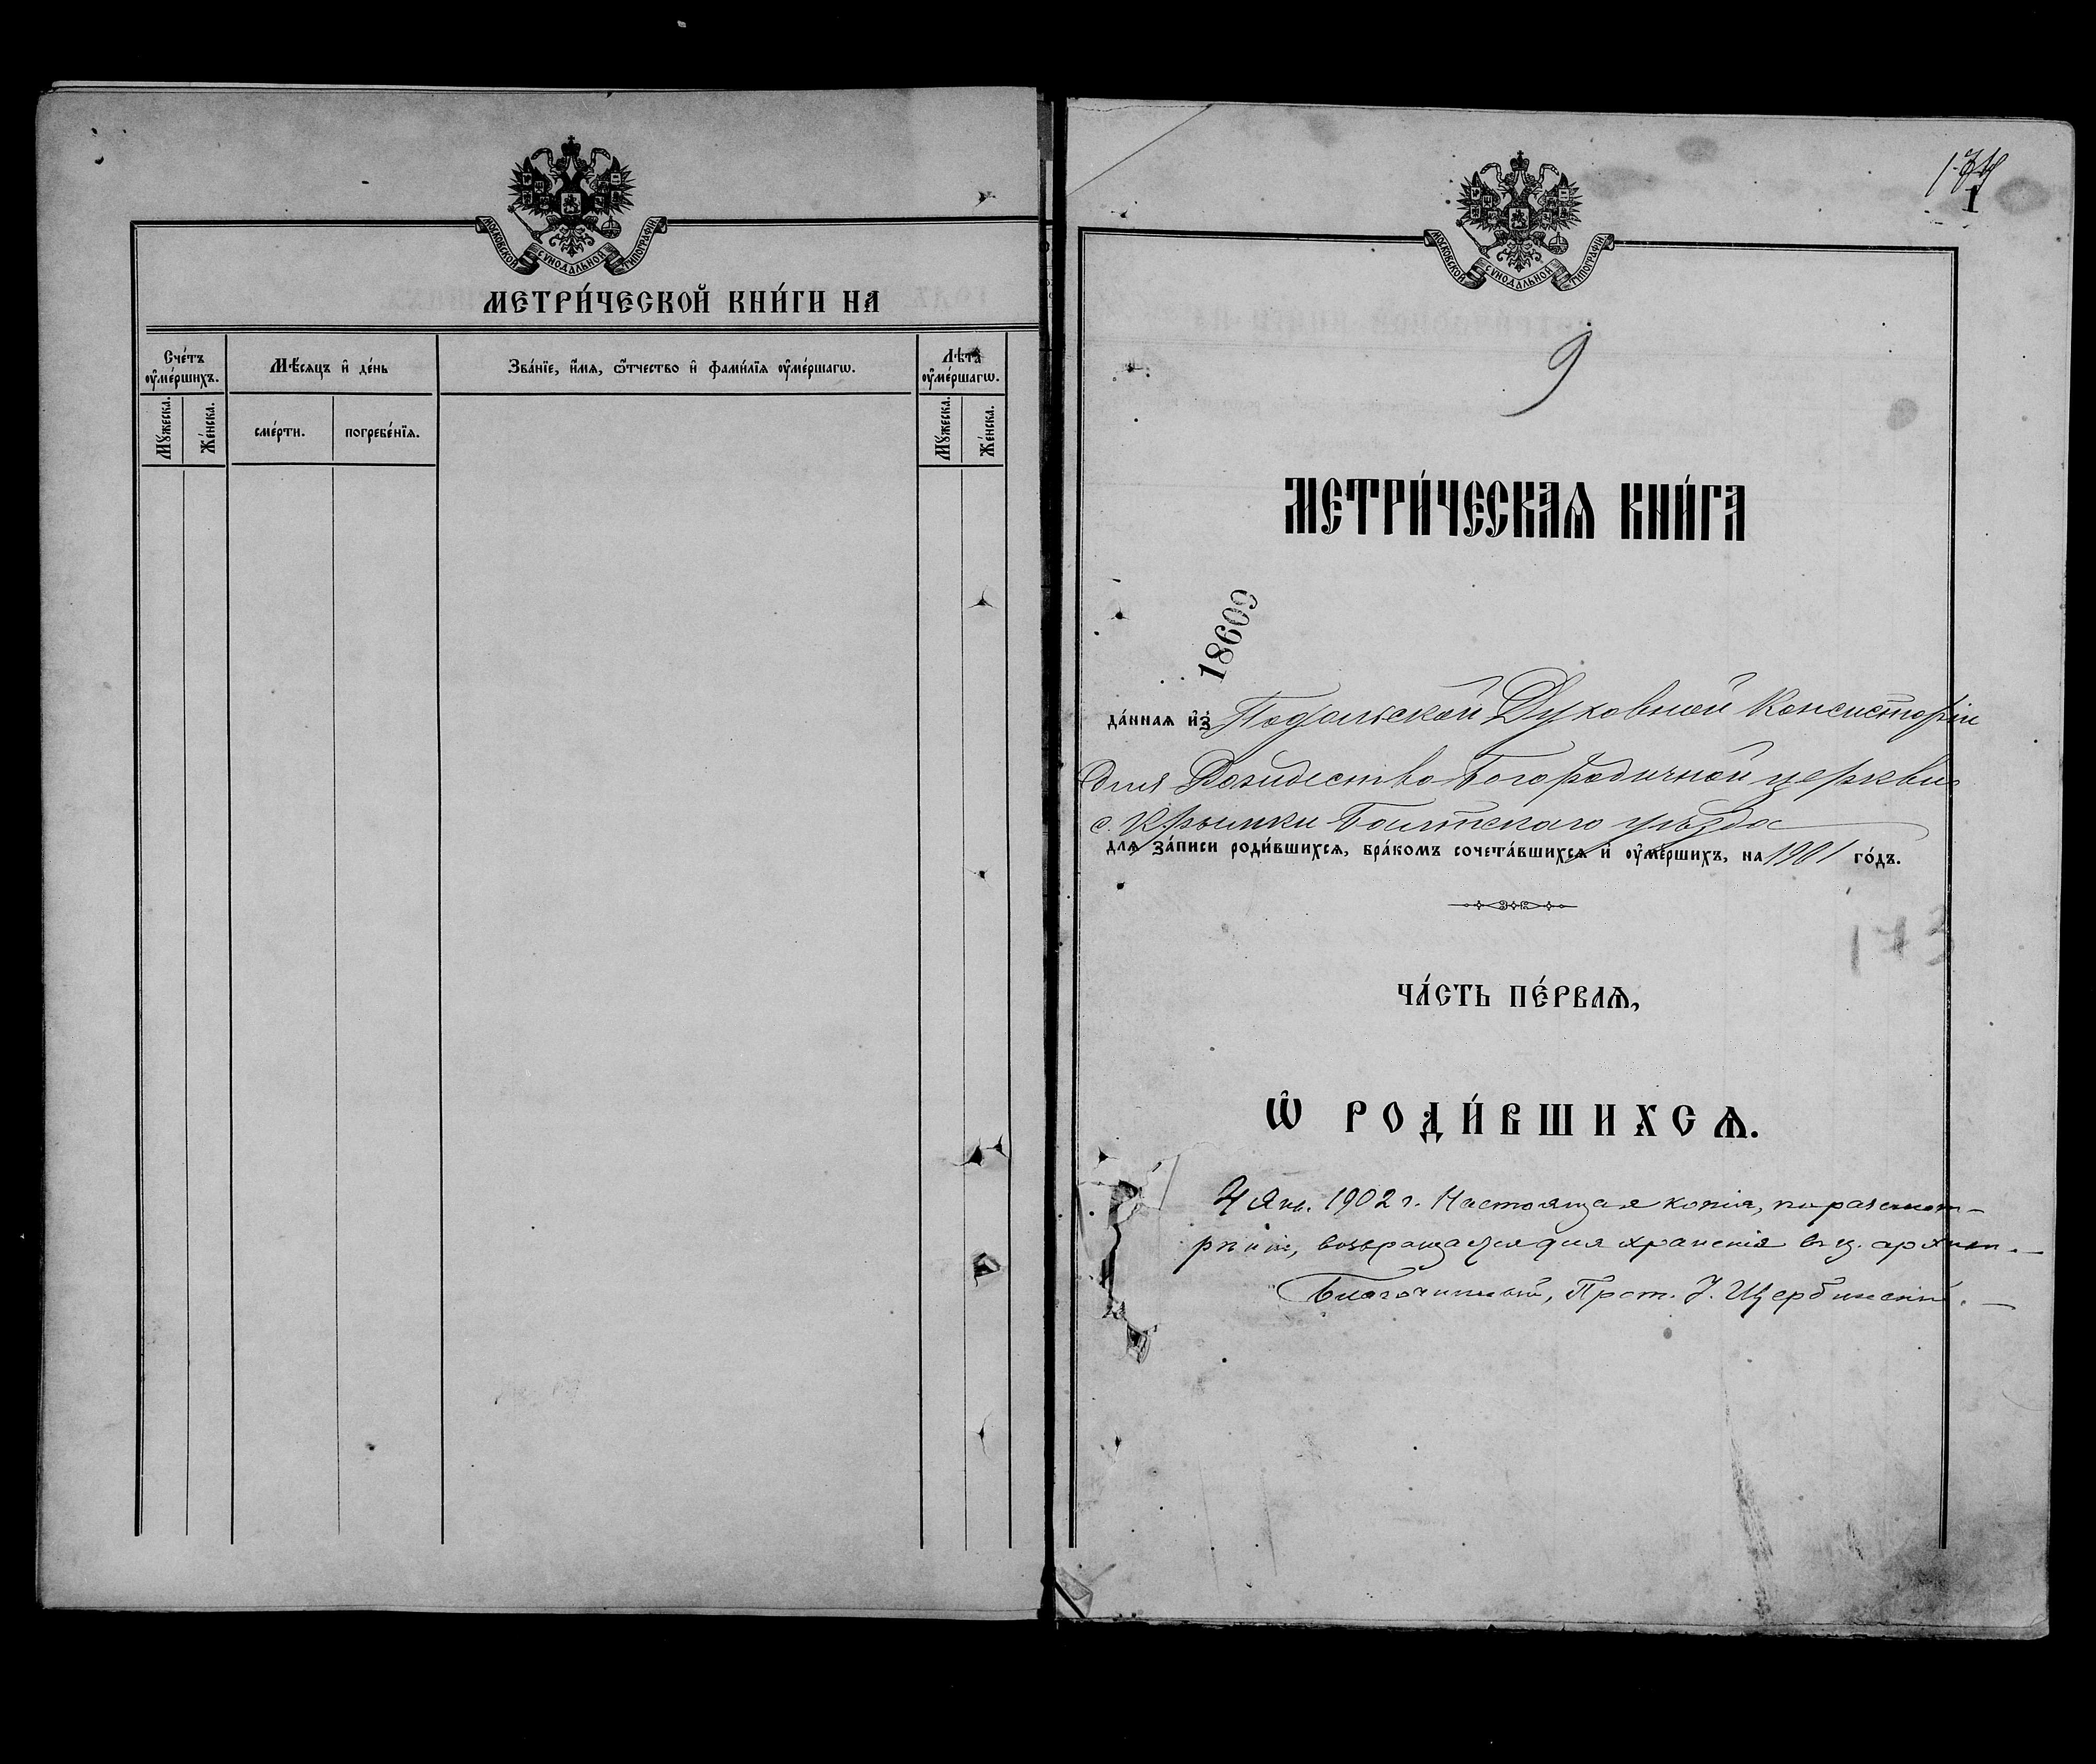 МОСКОВСКОЙ СѴНОДАЛЬНОЙ ТИПОГРАФІИ
МЕТРИ́ЧЕСКОЙ КНИ́ГИ НА
Сче́тъ ᲂу҆ме́ршихъ.
Мѣ́сяцъ и҆ де́нь
Зва́нїе, и҆́мѧ, ѻ҆́тчество и҆ фами́лїѧ ᲂу҆ме́ршагѡ.
Лѣ́та ᲂу҆ме́ршагѡ.
Мꙋ́жеска.
Же́нска.
сме́рти.
погребе́нїѧ.
Мꙋ́жеска.
Же́нска.
1
МОСКОВСКОЙ СѴНОДАЛЬНОЙ ТИПОГРАФІИ
9
МЕТРИ́ЧЕСКАѦ КНИ́ГА
18609
да́ннаѧ и҆з̾ Подольской Духовной Консисторіи
для Рождество-Богородичной церкви
с. Крымки Балтскаго уѣзда
длѧ за́писи роди́вшихсѧ, бра́комъ сочета́вшихсѧ и҆ ᲂу҆ме́ршихъ, на 1901 го́дъ.
173
ЧА́СТЬ ПЕ́РВАѦ,
Ѡ҆ РОДИ́ВШИХСѦ.
4 Янв. 1902 г. Настоящая копія, по разсмот-
рѣніи, возвращается для храненія въ ц. архивѣ.—
Благочинный, Прот. І. Щербинскій.—